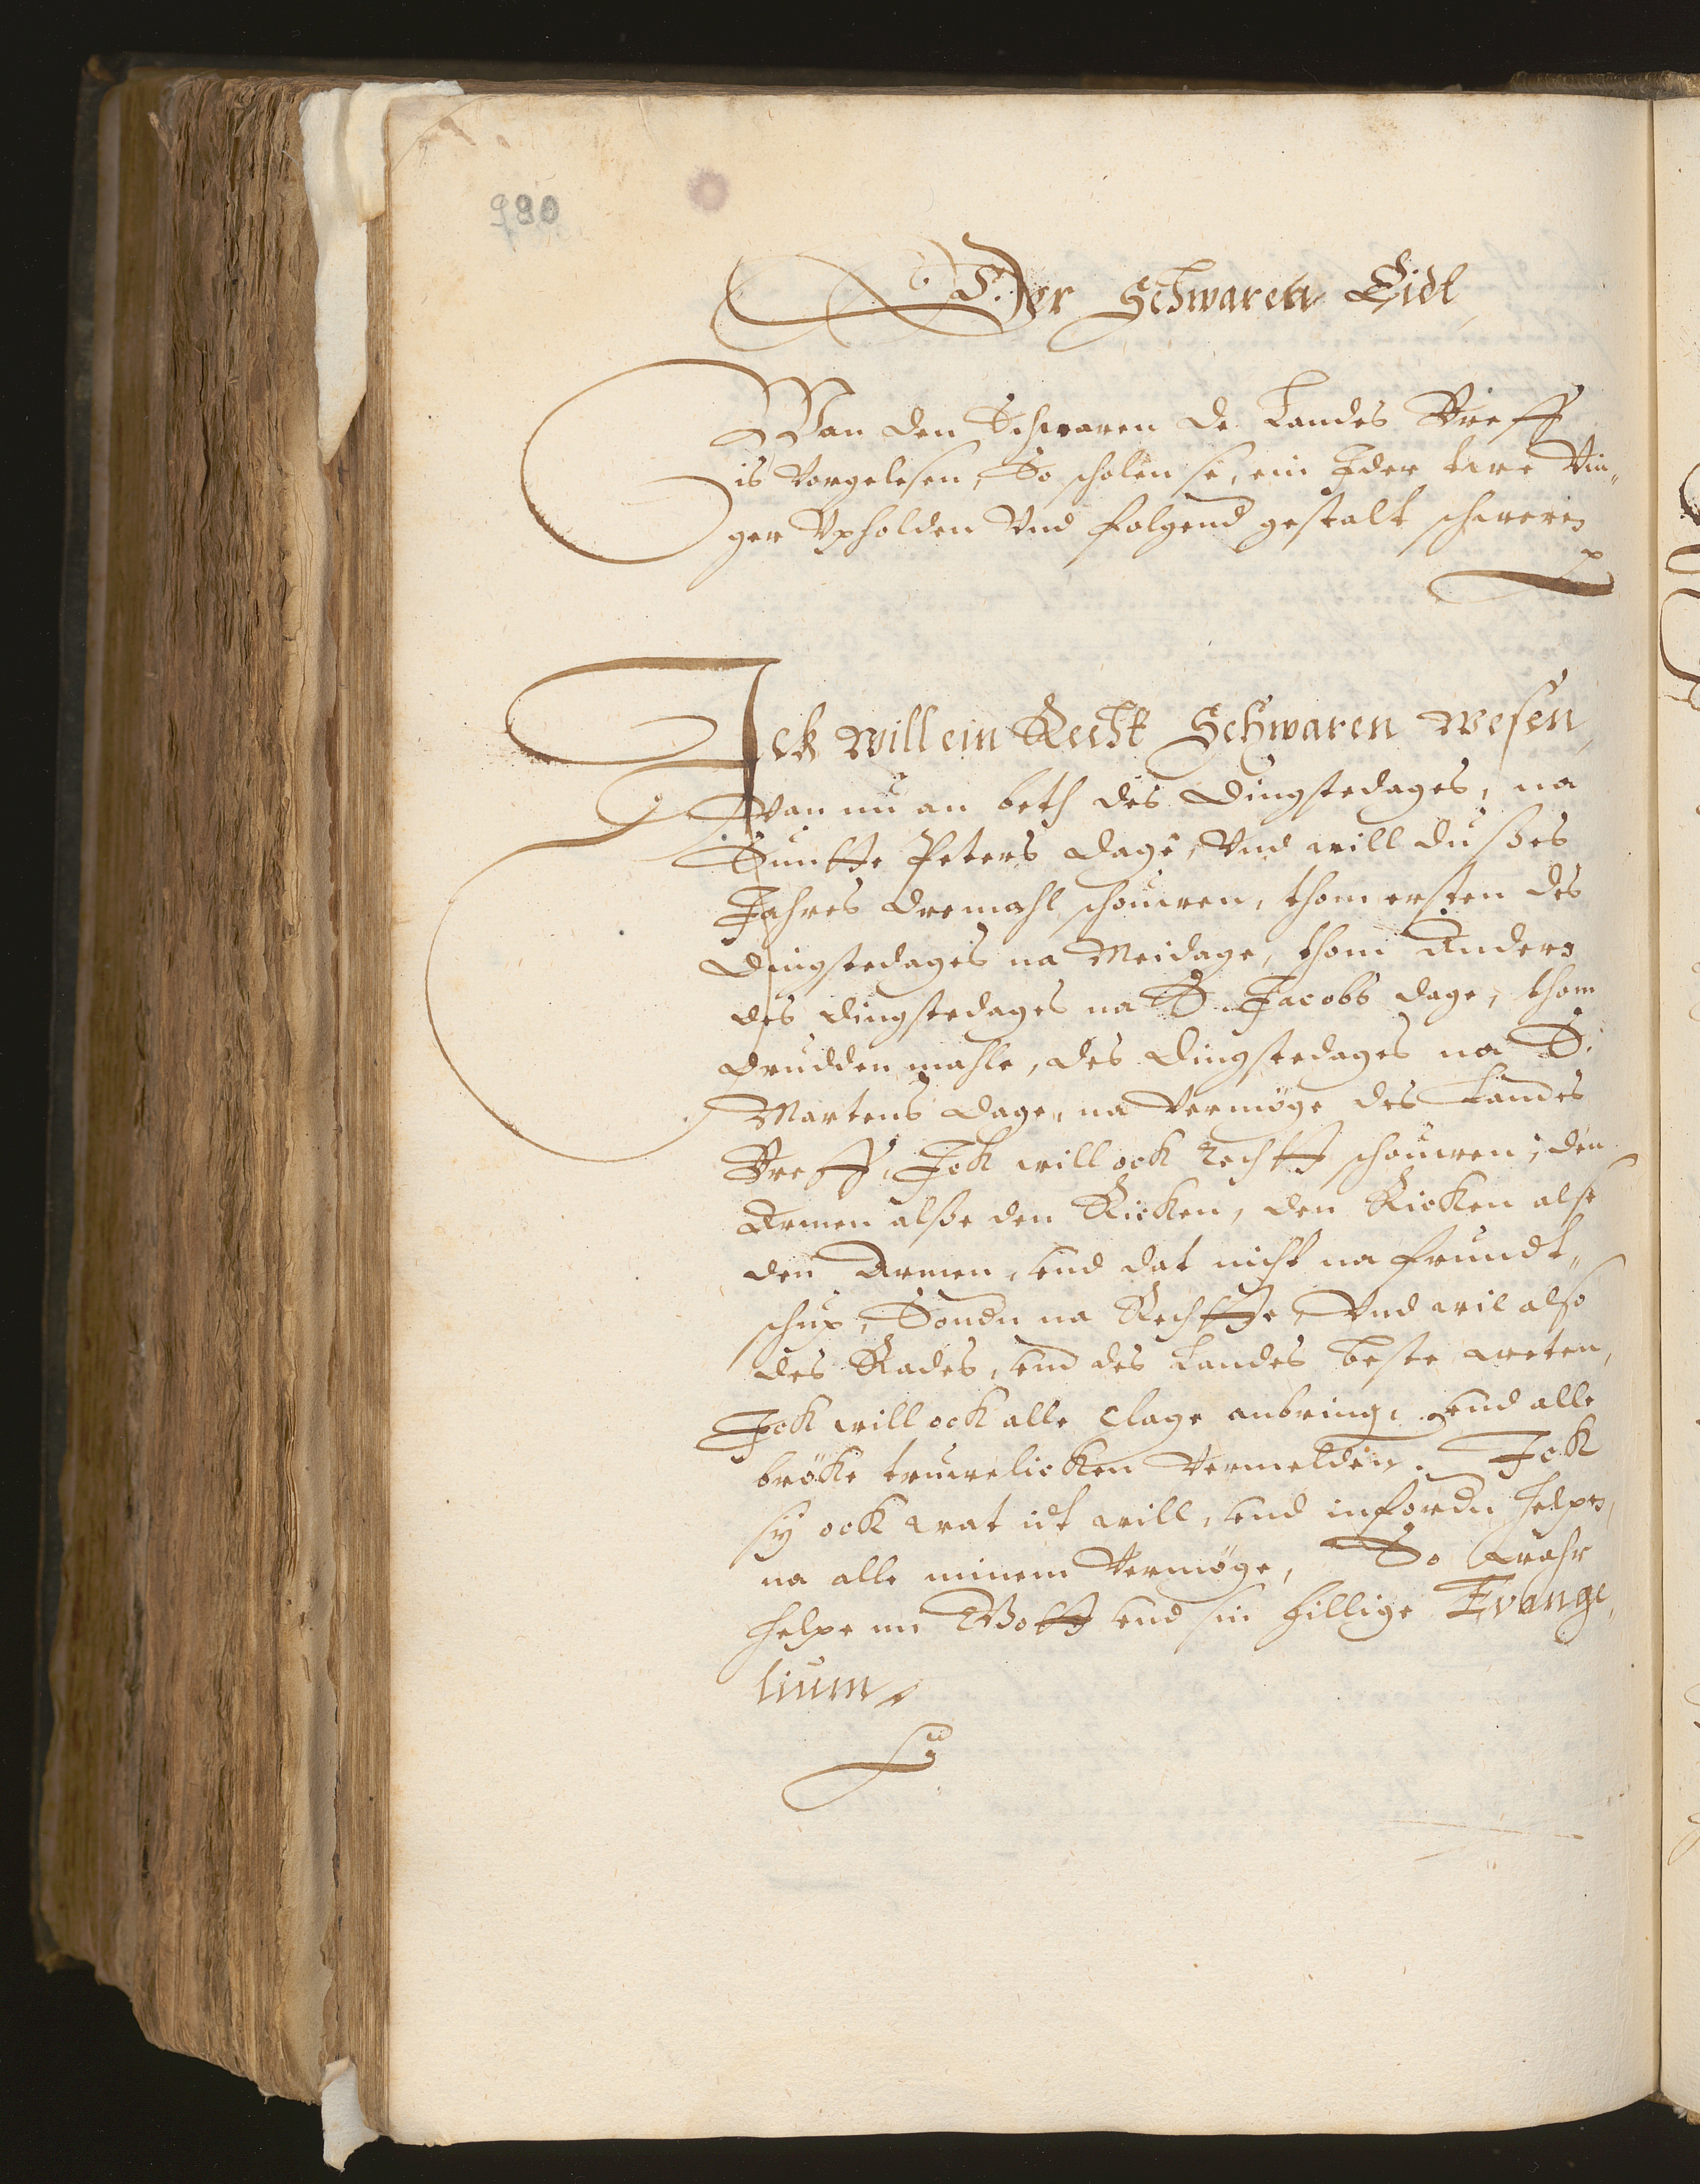 980
Der Schwaren Eidt
Wan den Schwaren de Landes Breff
is Vorgelesen, So scholen se, ein Jder twe Vin„
ger Vpholden Vnd folgend gestalt schweren
Ick will ein Recht Schwaren wesen,
Van nu an beth des Dingstedages, na
Suntte Peters dage, Vnd will dußes
Jahres dremahl schouwen, thom ersten des
Dingstedages na Meidage, thom Andern
des dingstedages na S. Jacobs dage, thom
drudden mahle, des Dingstedages na S.
Martens dage, na Vermöge des Landes
Breff, Ick will ock rechtt schouwen, den
Armen alße den Ricken, den Ricken alse
den Armen, vnd dat nicht na frundt„
schup, Sondn na Rechtte, Vnd wil also
des Rades, vnd des Landes beste weten,
Ick will ock alle clage anbring, vnd alle
bröke truwelicken Vermelden. Ick
sy ock wat idt will, vnd infordn helpn,
na alle minem Vermöge, So Wahr
helpe mi Gott vnd sin hillige Evange„
lium